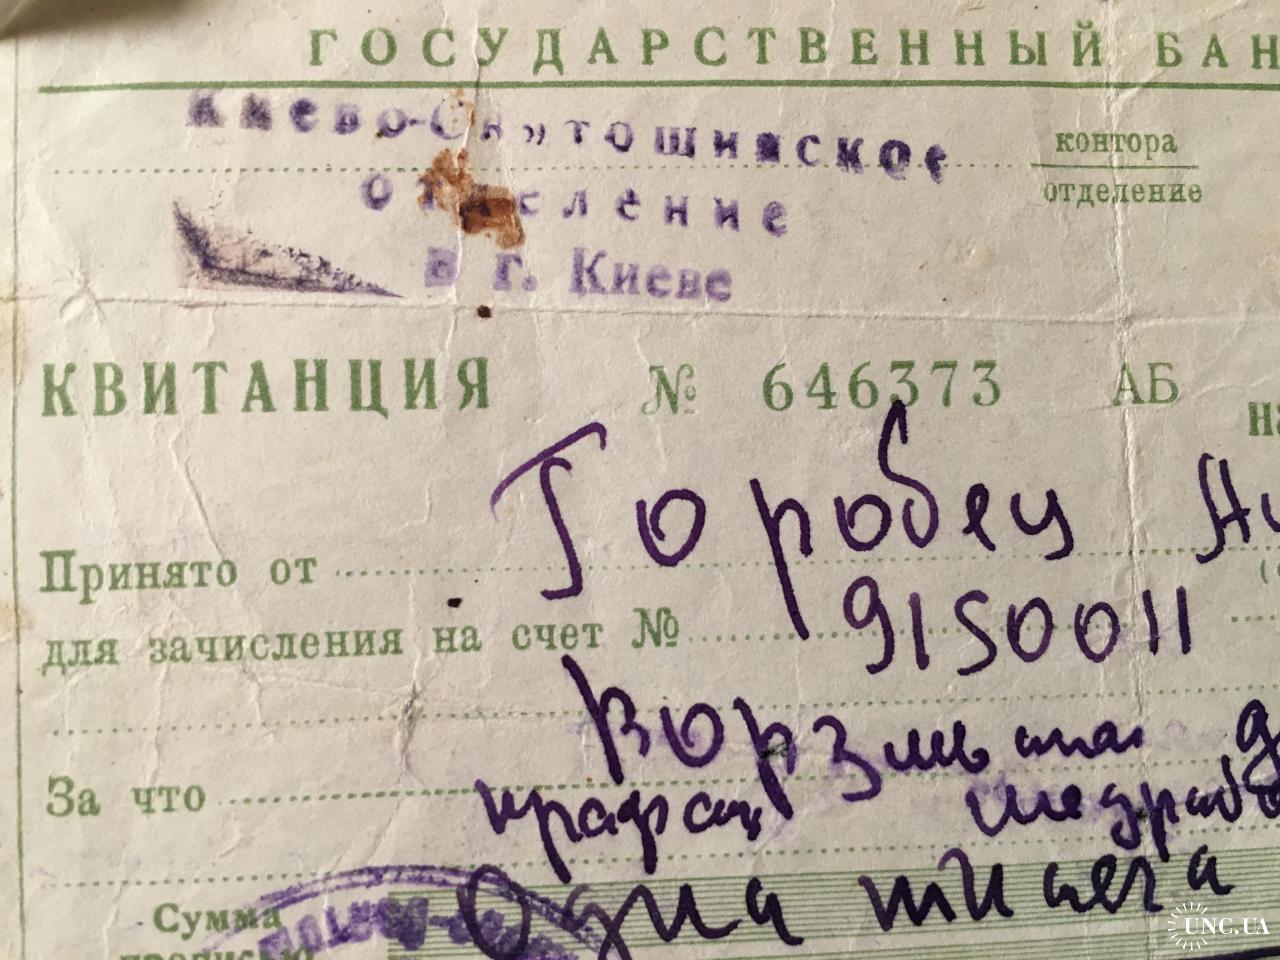 ГОСУДАРСТВЕННЫЙ БАН
Киево-Святошинское
отделение
в г. Киеве
контора
отделение
КВИТАНЦИЯ № 646373 АБ
на
Принято от Горобец Ан
для зачисления на счет № 9150011
Ворзельская
За что
Одна тысяча
Сумма
прописью
UNC.UA